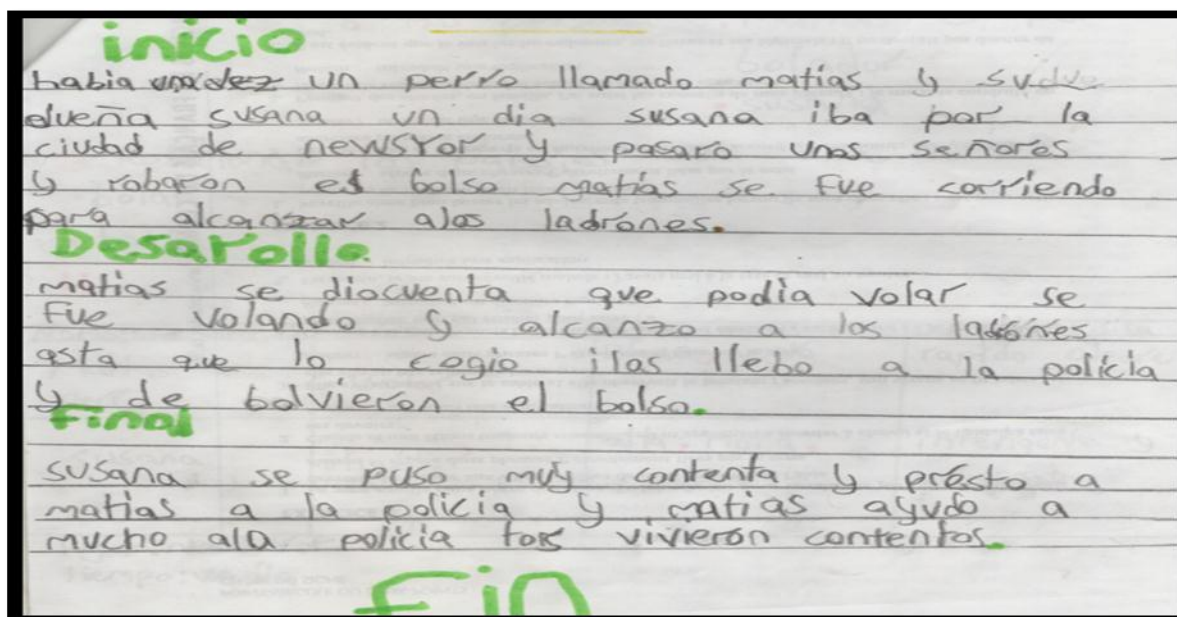 inicio
habia una vez un perro llamado matias y su
dueña susana un dia susana iba por la
ciudad de newsYor y pasaro unos señores
y robaron el bolso matias se fue corriendo
para alcanzar alos ladrones.
Desarollo.
matias se diocuenta que podia volar se
fue volando y alcanzo a los ladrones
asta que lo cogio ilas llebo a la policia
y de bolvieron el bolso.
Final
susana se puso muy contenta y présto a
matias a la policia y matias ayudo a
mucho ala policia vivieron contentos.
fin